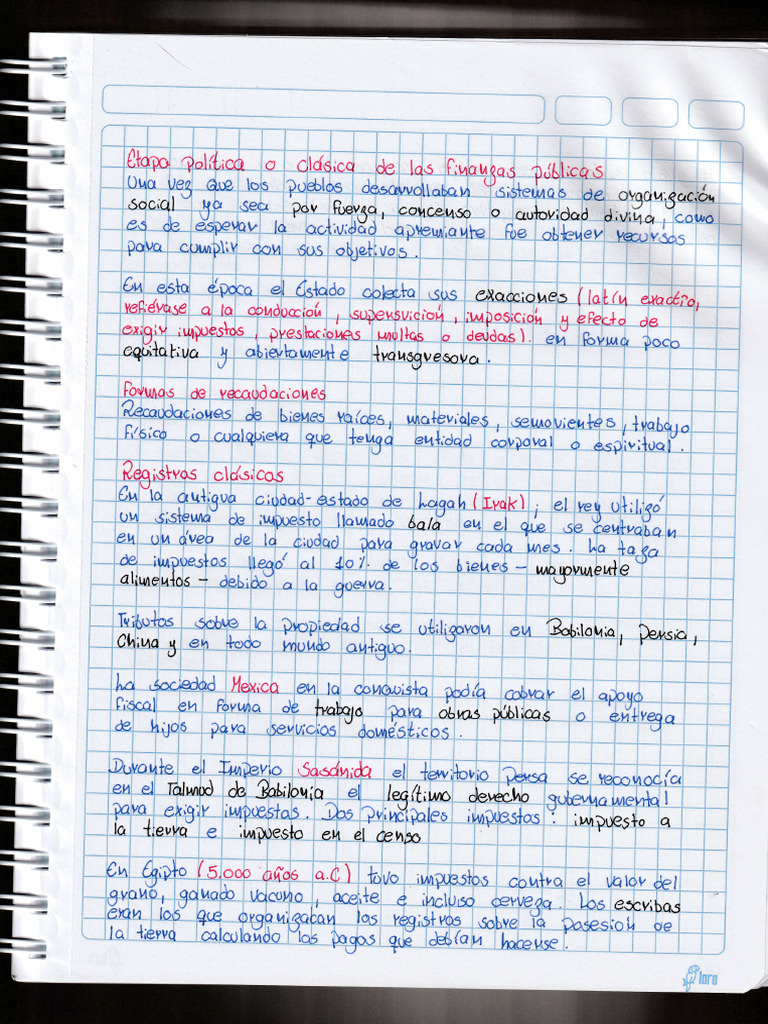 Etapa política o clásica de las finanzas públicas
Una vez que los pueblos desarrollaban sistemas de organización
social ya sea por fuerza, concenso o autoridad divina, como
es de esperar la actividad apremiante fue obtener recursos
para cumplir con sus objetivos.
En esta época el Estado colecta sus exacciones (latín exactio,
refiérase a la conducción, supersvición, imposición y efecto de
exigir impuestos, prestaciones multas o deudas). en forma poco
equitativa y abiertamente transgresora.
Formas de recaudaciones
Recaudaciones de bienes raíces, materiales, semovientes, trabajo
físico o cualquiera que tenga entidad corporal o espiritual.
Registros clásicos
En la antigua ciudad-estado de Lagah (Irak), el rey utiligó
un sistema de impuesto llamado bala en el que se centraban
en un área de la ciudad para gravar cada mes. La taga
de impuestos llegó al 10% de los bienes - mayormente
alimentos - debido a la guerra.
Tributos sobre la propiedad se utiligaron en Babilonia, Persia,
China y en todo mundo antiguo.
La sociedad Mexica en la conquista podía cobrar el apoyo
fiscal en forma de trabajo para obras públicas o entrega
de hijos para servicios domésticos.
Durante el Imperio Sasánida el territorio Persa se reconocía
en el Talmod de Babilonia el legítimo derecho gubernamental
para exigir impuestas. Dos principales impuestos: impuesto a
la tierra e impuesto en el censo
En Egipto (5,000 años a.C) tuvo impuestos contra el valor del
grano, ganado vacuno, aceite e incluso cerveza. Los escribas
eran los que organizacan los registros sobre la posesión de
la tierra calculando los pagos que debían hacerse.
loro